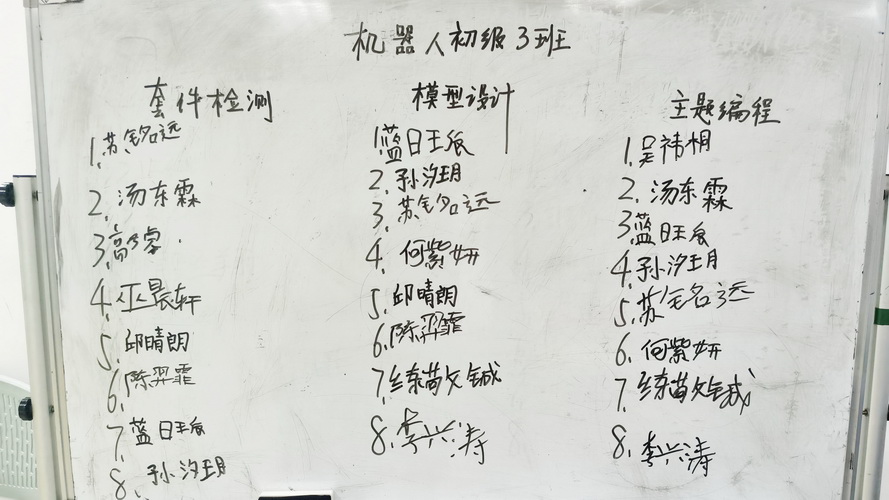 机器人初级3班
套件检测
1.苏铭远
2.汤东霖
3.高睿
4.巫晨轩
5.邱晴朗
6.陈羿霏
7.蓝日辰
8.孙汐玥
模型设计
1.蓝日辰
2.孙汐玥
3.苏铭远
4.何紫妍
5.邱晴朗
6.陈羿霏
7.练苟文铖
8.李兴涛
主题编程
1.吴祎桐
2.汤东霖
3.蓝日辰
4.孙汐玥
5.苏铭远
6.何紫妍
7.练苟文铖
8.李兴涛